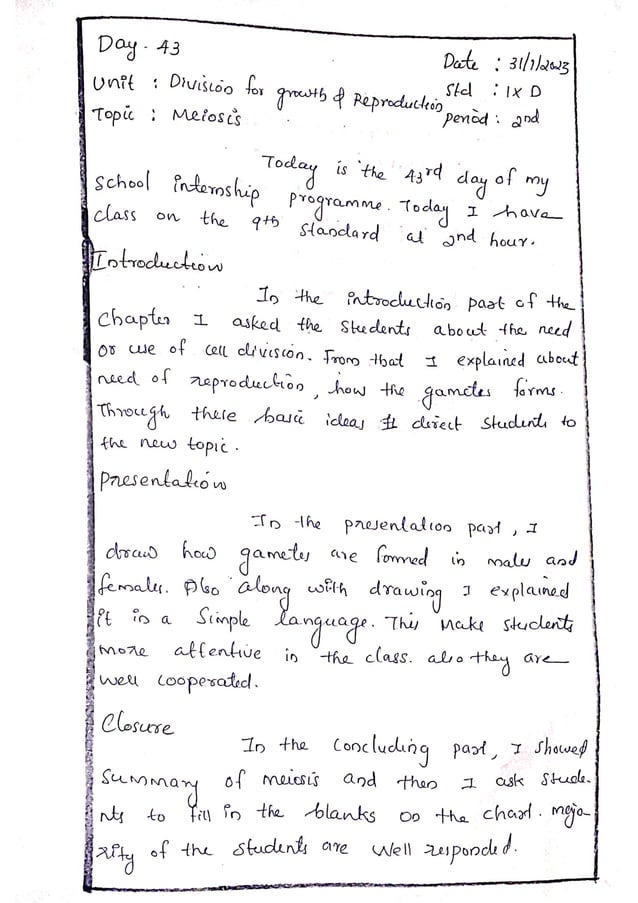 Day - 43
Date : 31/1/2023
Unit : Division for growth & Reproduction
Std : IX D
Topic : Meiosis
period : 2nd
Today is the 43rd day of my
school internship programme. Today I have
class on the 9th standard at 2nd hour.
Introduction
In the introduction part of the
Chapter I asked the students about the need
or use of cell division. From that I explained about
need of reproduction, how the gametes forms.
Through these basic ideas I direct students to
the new topic.
Presentation
In the presentation part, I
draw how gametes are formed in males and
females. Also along with drawing I explained
it in a simple language. This make students
more attentive in the class. also they are
well cooperated.
Closure
In the concluding part, I showed
summary of meiosis and then I ask stude-
nts to fill in the blanks on the chart. majo-
rity of the students are well responded.